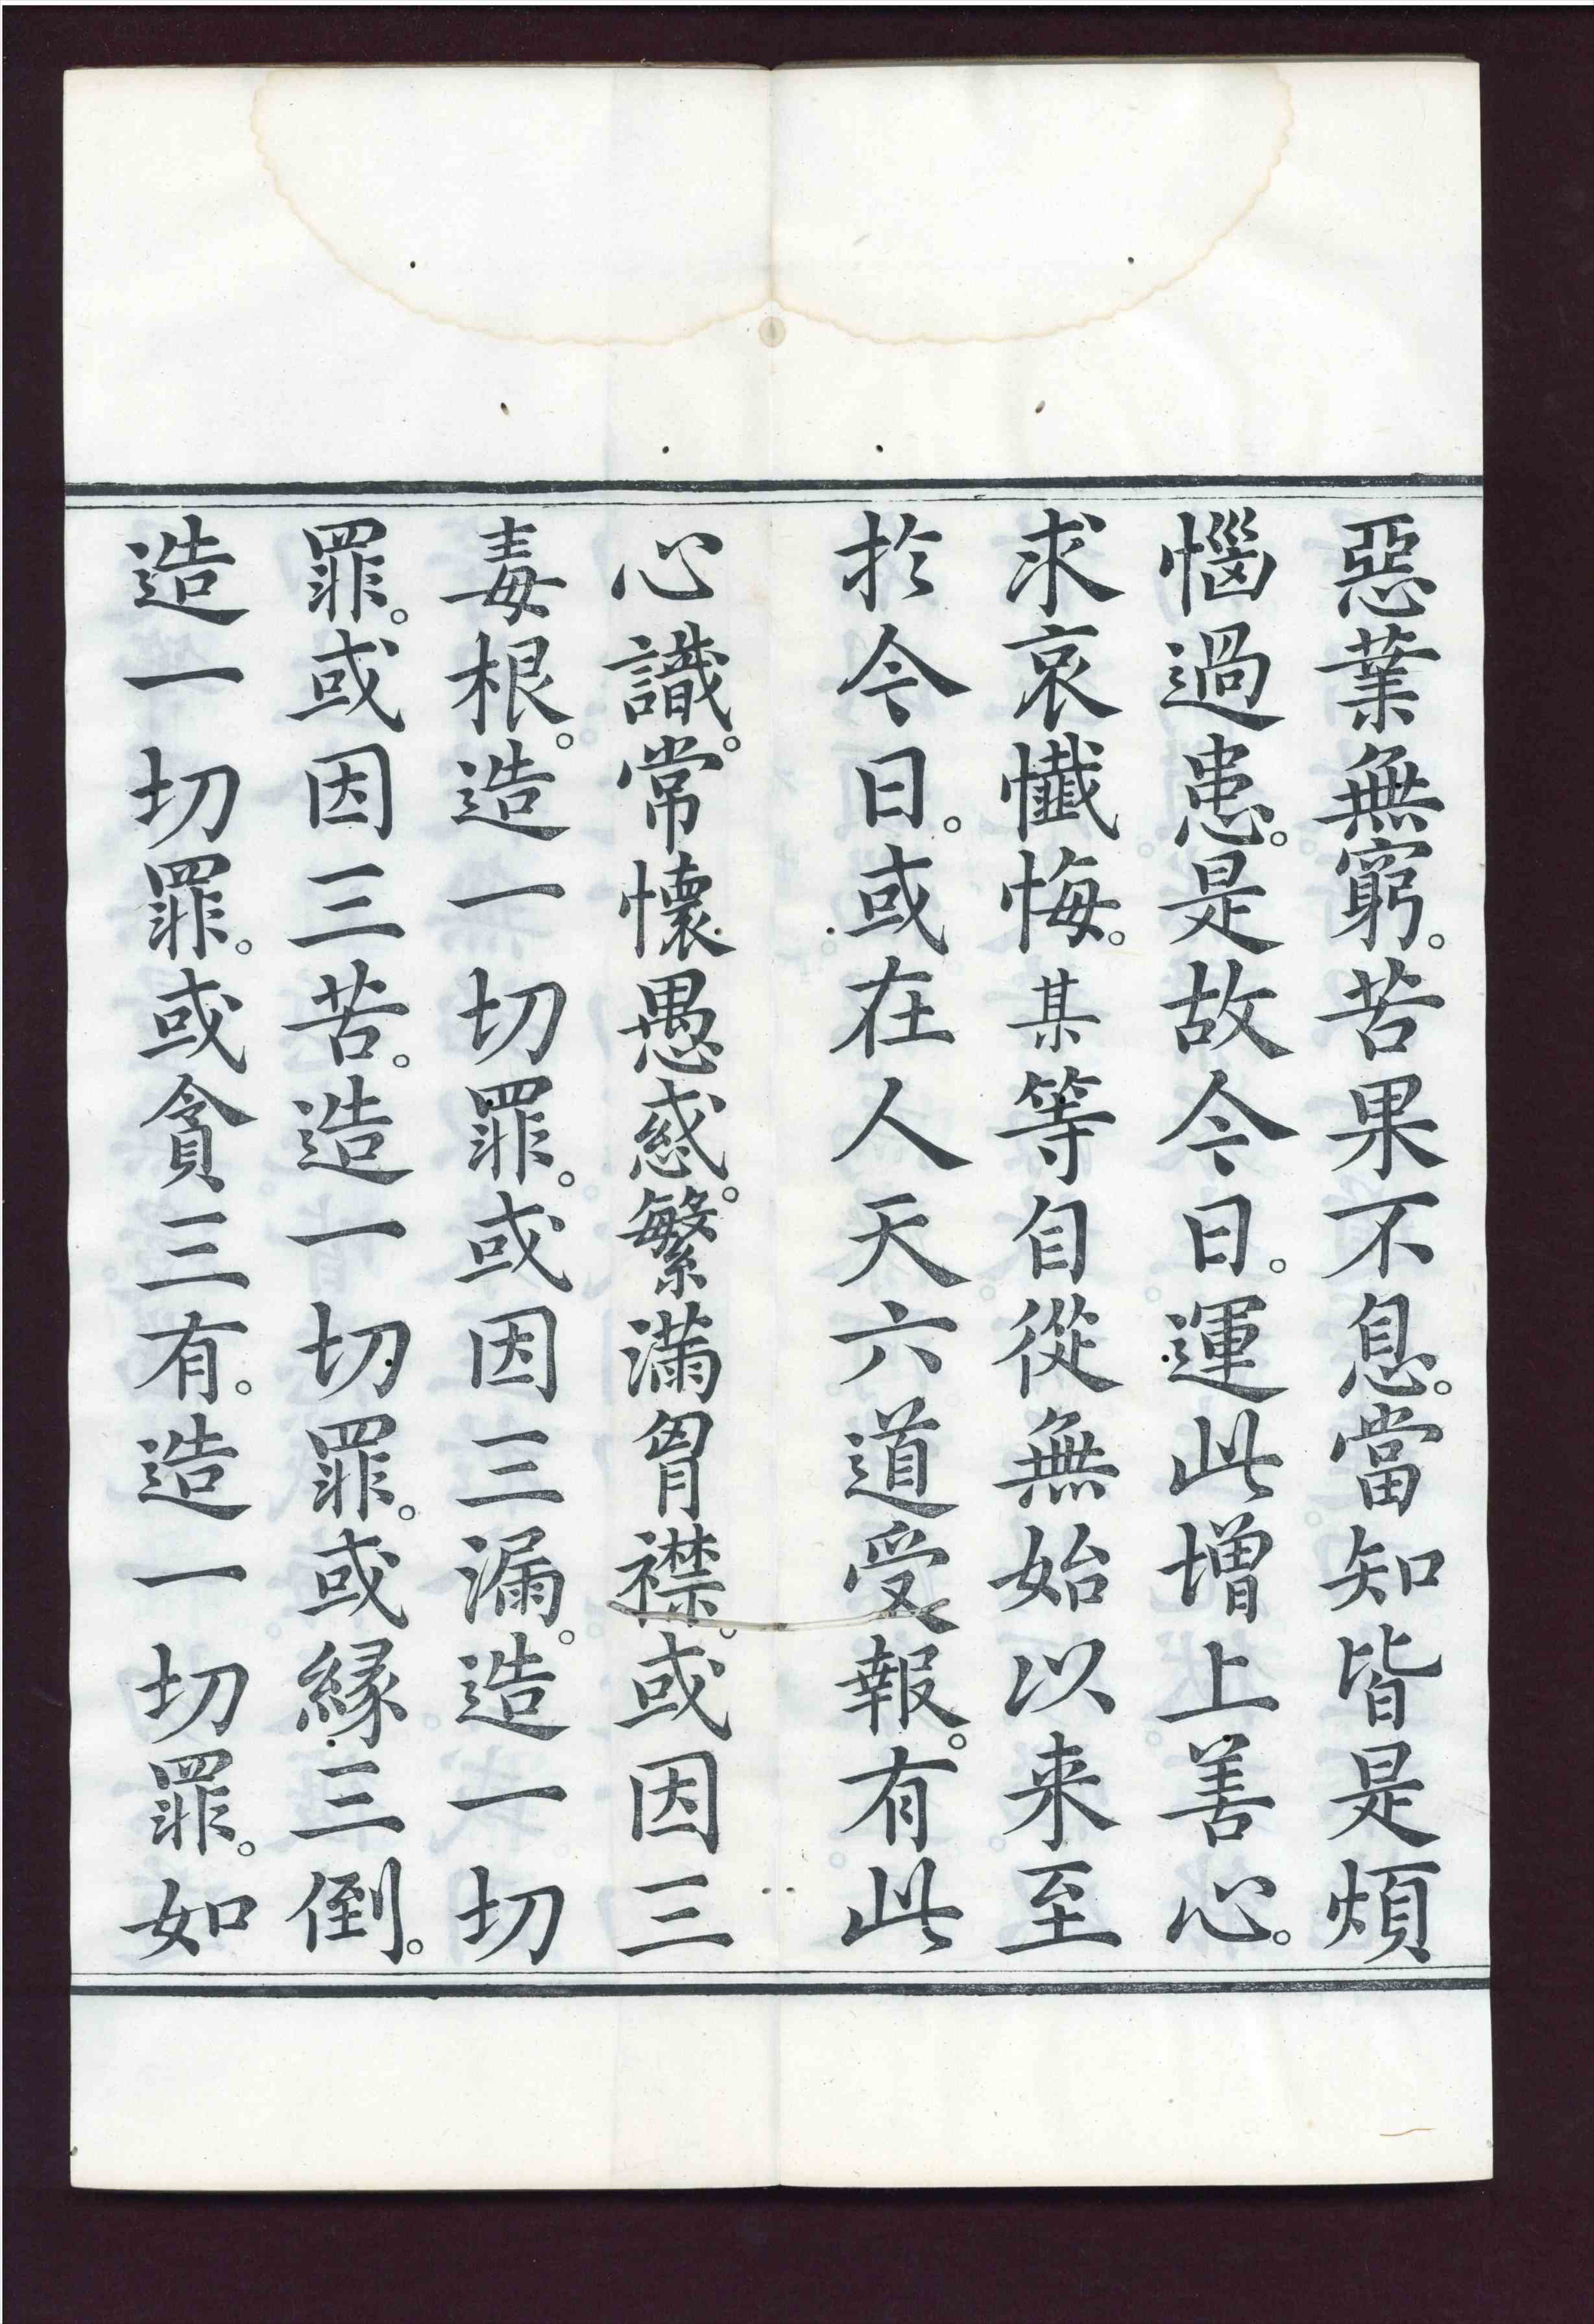 惡業無窮。苦果不息。當知皆是煩
惱過患。是故今日。運此增上善心。
求哀懺悔。某等自從無始以来至
於今日。或在人天六道受報。有此
心識。常懷愚惑。繁滿胷襟。或因三
毒根。造一切罪。或因三漏。造一切
罪。或因三苦。造一切罪。或緣三倒。
造一切罪。或貪三有。造一切罪。如